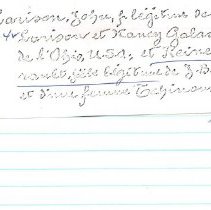 Larison, John, f. légitime de
Larison et Nancy Gala
de l'Ohio, U.S.A., et Reine
fille légitime de J. B
et d'une femme